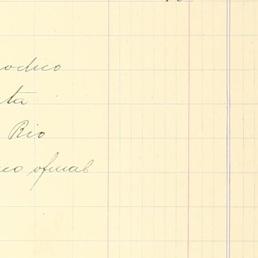 odico
ta
Rio
co oficial